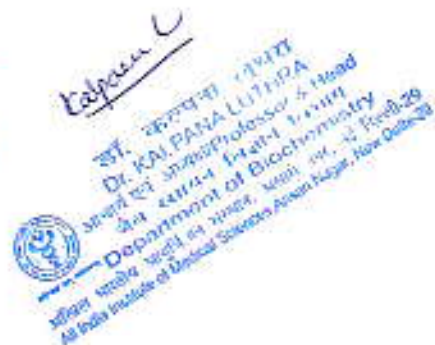 Kalpana L
डॉ. कल्पना लूथरा
Dr. KALPANA LUTHRA
आचार्य एवं अध्यक्ष/Professor & Head
जैव रसायन विज्ञान विभाग
Department of Biochemistry
अखिल भारतीय आयुर्विज्ञान संस्थान, नई दिल्ली-29
All India Institute of Medical Sciences Ansari Nagar, New Delhi-29